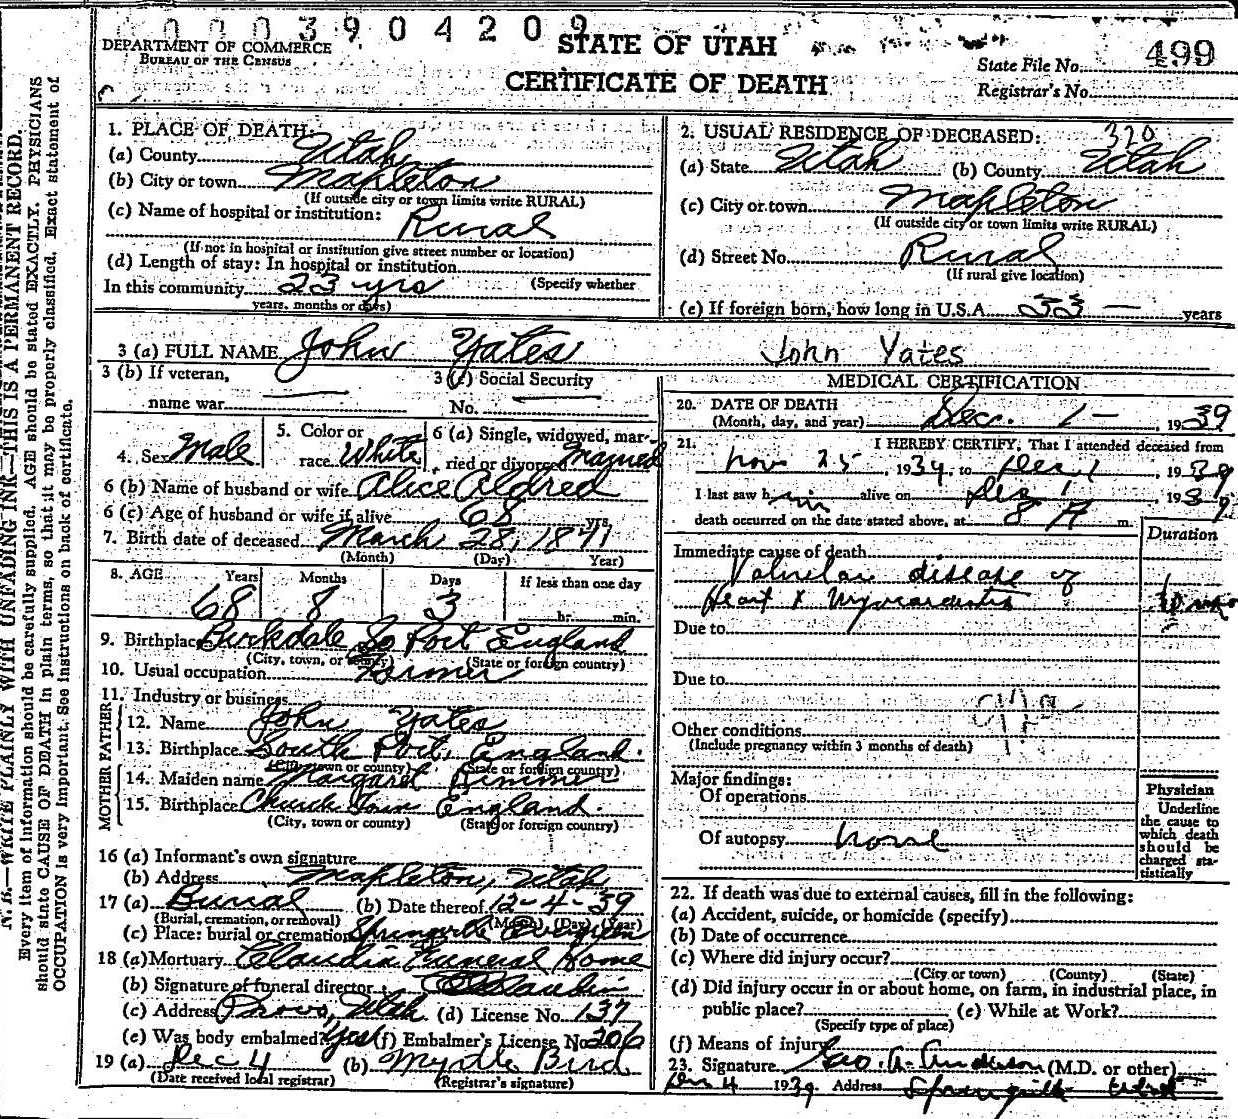 0003904209
DEPARTMENT OF COMMERCE
BUREAU OF THE CENSUS
STATE OF UTAH
CERTIFICATE OF DEATH
State File No. 499
Registrar's No.
N. B.—WRITE PLAINLY WITH UNFADING INK—THIS IS A PERMANENT RECORD.
Every item of information should be carefully supplied. AGE should be stated EXACTLY. PHYSICIANS
should state CAUSE OF DEATH in plain terms, so that it may be properly classified. Exact statement of
OCCUPATION is very important. See instructions on back of certificate.
1. PLACE OF DEATH:
(a) County Utah
(b) City or town Mapleton
(If outside city or town limits write RURAL)
(c) Name of hospital or institution: Rural
(If not in hospital or institution give street number or location)
(d) Length of stay: In hospital or institution
In this community 23 yrs (Specify whether
years, months or days)
2. USUAL RESIDENCE OF DECEASED: 320
(a) State Utah (b) County Utah
(c) City or town Mapleton
(If outside city or town limits write RURAL)
(d) Street No. Rural
(If rural give location)
(e) If foreign born, how long in U.S.A. 33 — years
3 (a) FULL NAME John Yates John Yates
3 (b) If veteran, name war —
3 (c) Social Security No. —
4. Sex Male
5. Color or race White
6 (a) Single, widowed, married or divorced Married
6 (b) Name of husband or wife Alice Aldred
6 (c) Age of husband or wife if alive 68 yrs.
7. Birth date of deceased March 28, 1871
(Month) (Day) (Year)
8. AGE Years Months Days If less than one day
68 8 3 hr. min.
9. Birthplace Birkdale So Port England
(City, town, or county) (State or foreign country)
10. Usual occupation Farmer
11. Industry or business
FATHER
12. Name John Yates
13. Birthplace South Port, England.
(City, town or county) (State or foreign country)
MOTHER
14. Maiden name Margaret Rimmer
15. Birthplace Church Town England.
(City, town or county) (State or foreign country)
16 (a) Informant's own signature
(b) Address Mapleton, Utah
17 (a) Burial (b) Date thereof 12-4-39
(Burial, cremation, or removal) (Month) (Day) (Year)
(c) Place: burial or cremation Springville Evergreen
18 (a) Mortuary Claudin Funeral Home
(b) Signature of funeral director Claudin
(c) Address Provo, Utah. (d) License No. 137
(e) Was body embalmed? Yes (f) Embalmer's License No. 206
19 (a) Dec 4 (b) Myrtle Bird
(Date received local registrar) (Registrar's signature)
MEDICAL CERTIFICATION
20. DATE OF DEATH
(Month, day, and year) Dec. 1 — , 1939
21. I HEREBY CERTIFY, That I attended deceased from
Nov 25, 1939, to Dec 1, 1939
I last saw him alive on Dec 1, 1939
death occurred on the date stated above, at 8 A m.
Duration
Immediate cause of death
Valvular disease of
Heart & Myocarditis
Due to
Due to
Other conditions
(Include pregnancy within 3 months of death)
Major findings:
Of operations
Of autopsy none
Physician
Underline
the cause to
which death
should be
charged sta-
tistically
22. If death was due to external causes, fill in the following:
(a) Accident, suicide, or homicide (specify)
(b) Date of occurrence
(c) Where did injury occur?
(City or town) (County) (State)
(d) Did injury occur in or about home, on farm, in industrial place, in
public place? (e) While at Work?
(Specify type of place)
(f) Means of injury
23. Signature Geo. A. Anderson (M.D. or other)
Dec 4 1939 Address Springville Utah